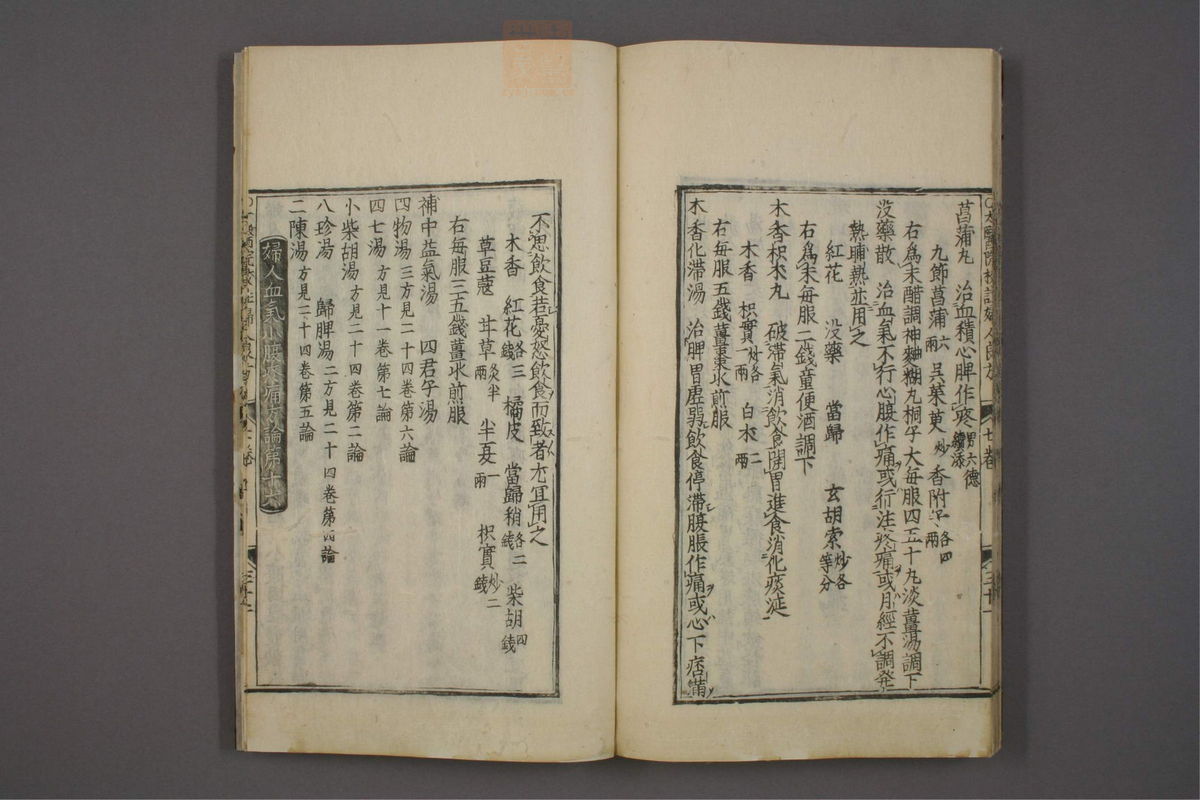 菖蒲丸 治血積心脾作疼 男六德續添
九節菖蒲六兩 吳茱萸炒 香附子各四兩
右爲末醋調神麯糊丸桐子大每服四五十丸淡薑湯調下
沒藥散 治血氣不行心腹作痛或行注疼痛或月經不調發
熱晡熱並用之
紅花 沒藥 當歸 玄胡索炒各等分
右爲末每服二錢童便酒調下
木香枳朮丸 破滯氣消飲食開胃進食消化痰涎
木香 枳實炒各一兩 白朮二兩
右每服五錢薑棗水煎服
木香化滯湯 治脾胃虛弱飲食停滯腹脹作痛或心下痞滿
不思飲食若憂怒飲食而致者尤宜用之
木香 紅花各三錢 橘皮 當歸稍各二錢 柴胡四錢
草豆蔻 甘草炙半兩 半夏一兩 枳實炒二錢
右每服三五錢薑水煎服
補中益氣湯 四君子湯
四物湯三方見二十四卷第六論
四七湯方見十一卷第七論
小柴胡湯方見二十四卷第二論
八珍湯 歸脾湯二方見二十四卷第四論
二陳湯方見二十四卷第五論
婦人血氣小腹疼痛方論第十六